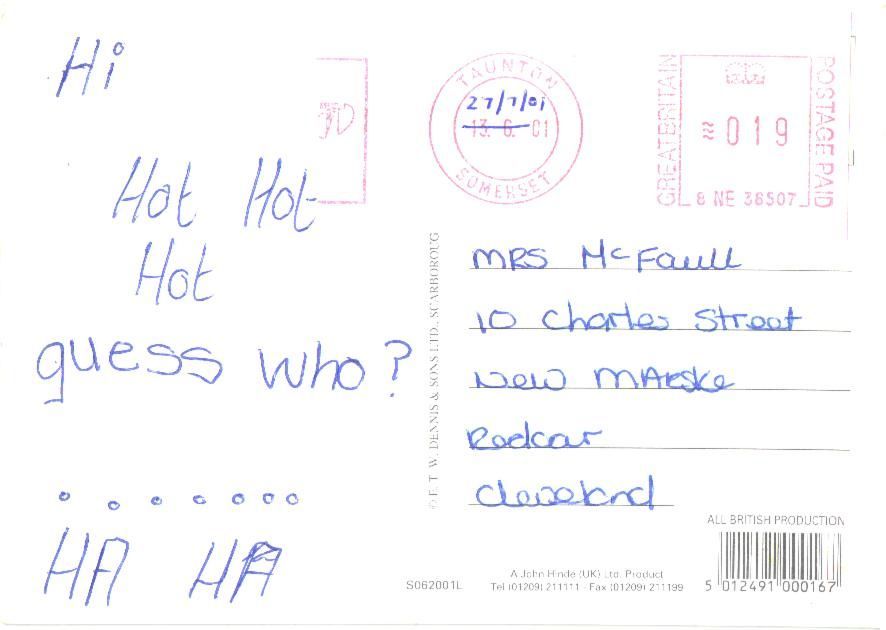 Hi
Hot Hot
Hot
guess who?
. . . . . . .
HA HA
TAUNTON
27/7/01
13. 6. 01
SOMERSET
GREAT BRITAIN
019
8 NE 36507
POSTAGE PAID
MRS McFaull
10 Charles Street
New MArske
Redcar
Cleveland
© E. T. W. DENNIS & SONS LTD., SCARBOROUG
ALL BRITISH PRODUCTION
S062001L
A John Hinde (UK) Ltd. Product
Tel (01209) 211111 - Fax (01209) 211199
5 012491 000167